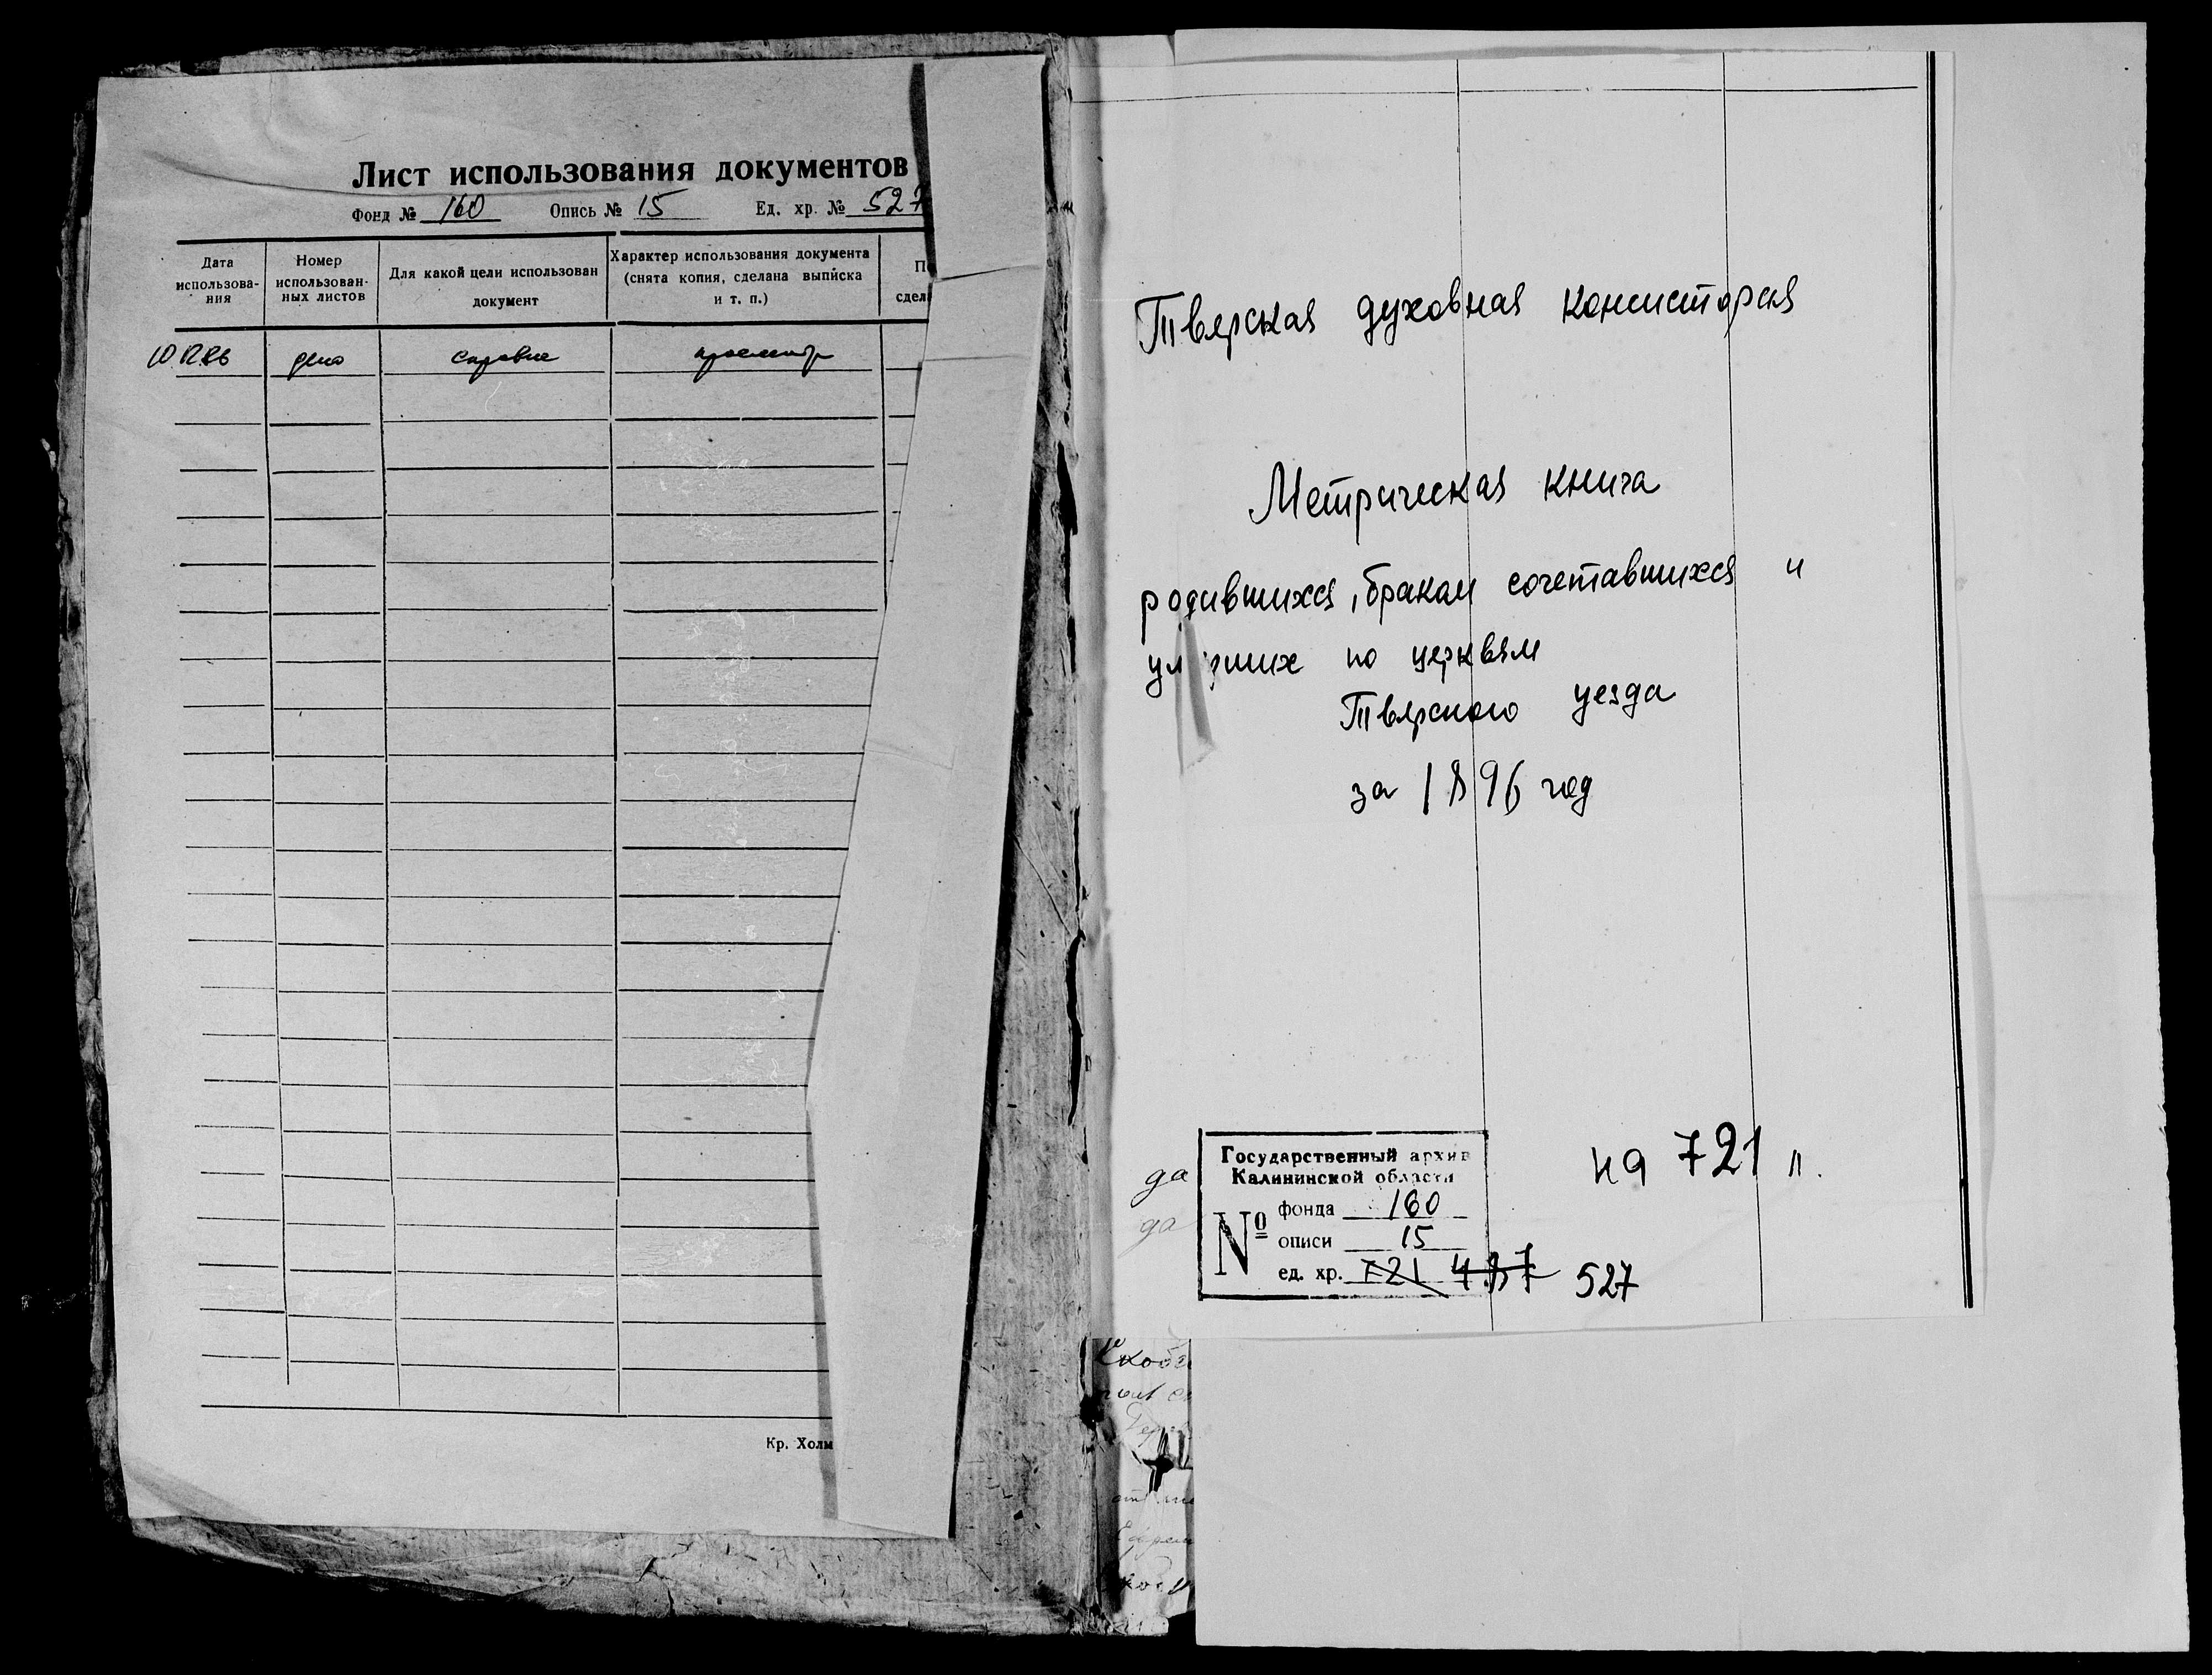 Лист использования документов
Фонд № 160 Опись № 15 Ед. хр. № 527
Дата использова-
ния
Номер
использован-
ных листов
Для какой цели использован
документ
Характер использования документа
(снята копия, сделана выписка
и т. п.)
10.12.86 дело просмотр
Кр. Холм
Тверская духовная консистория
Метрическая книга
родившихся, браком сочетавшихся и
умерших по церквям
Тверского уезда
за 1896 год
на 721 л.
да
да
Государственный архив
Калининской области
№
фонда 160
описи 15
ед. хр. 721 487 527